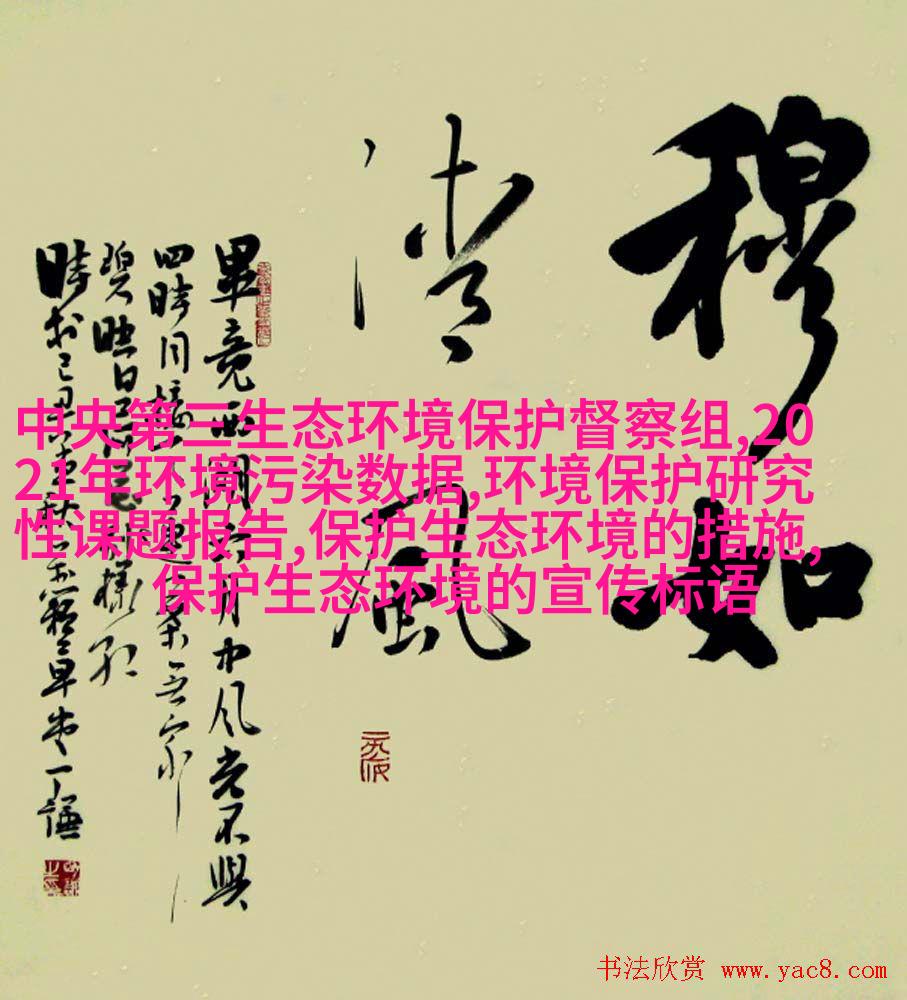 穆如
清風
畢竟西湖六月中風光不與
四時同接天蓮葉無窮
碧映日荷花別樣紅
中央第三生态环境保护督察组,20
21年环境污染数据,环境保护研究
性课题报告,保护生态环境的措施,
保护生态环境的宣传标语
书法欣赏 www.yac8.com